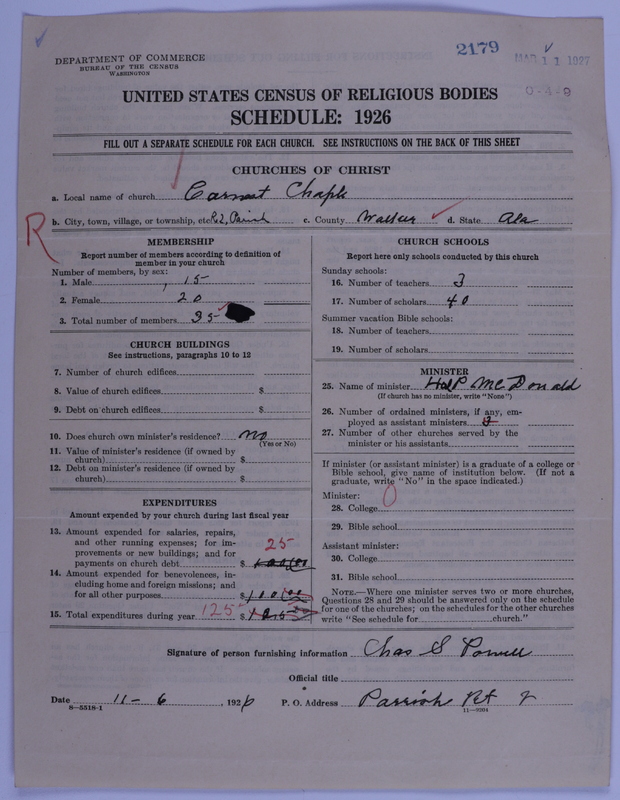 2179
MAR 11 1927
0-4-9
DEPARTMENT OF COMMERCE
BUREAU OF THE CENSUS
WASHINGTON
UNITED STATES CENSUS OF RELIGIOUS BODIES
SCHEDULE: 1926
FILL OUT A SEPARATE SCHEDULE FOR EACH CHURCH. SEE INSTRUCTIONS ON THE BACK OF THIS SHEET
CHURCHES OF CHRIST
a. Local name of church Earnest Chaple
R
b. City, town, village, or township, etc. R2, Parish c. County Walker d. State Ala
MEMBERSHIP
Report number of members according to definition of
member in your church
Number of members, by sex:
1. Male 15
2. Female 20
3. Total number of members 35
CHURCH BUILDINGS
See instructions, paragraphs 10 to 12
7. Number of church edifices
8. Value of church edifices $
9. Debt on church edifices $
10. Does church own minister's residence? no
(Yes or No)
11. Value of minister's residence (if owned by
church) $
12. Debt on minister's residence (if owned by
church) $
EXPENDITURES
Amount expended by your church during last fiscal year
13. Amount expended for salaries, repairs,
and other running expenses; for im-
provements or new buildings; and for
payments on church debt $ 25
14. Amount expended for benevolences, in-
cluding home and foreign missions; and
for all other purposes $ 100.00
15. Total expenditures during year 125 $
CHURCH SCHOOLS
Report here only schools conducted by this church
Sunday schools:
16. Number of teachers 3
17. Number of scholars 40
Summer vacation Bible schools:
18. Number of teachers
19. Number of scholars
MINISTER
25. Name of minister McDonald
(If church has no minister, write "None")
26. Number of ordained ministers, if any, em-
ployed as assistant ministers
27. Number of other churches served by the
minister or his assistants
If minister (or assistant minister) is a graduate of a college or
Bible school, give name of institution below. (If not a
graduate, write "No" in the space indicated.)
Minister: 0
28. College
29. Bible school
Assistant minister:
30. College
31. Bible school
NOTE.—Where one minister serves two or more churches,
Questions 28 and 29 should be answered only on the schedule
for one of the churches; on the schedules for the other churches
write "See schedule for church."
Signature of person furnishing information Chas S Powell
Official title
Date 11-6, 1926 P. O. Address Parrish Rt 2
8—5518-1 11—9204